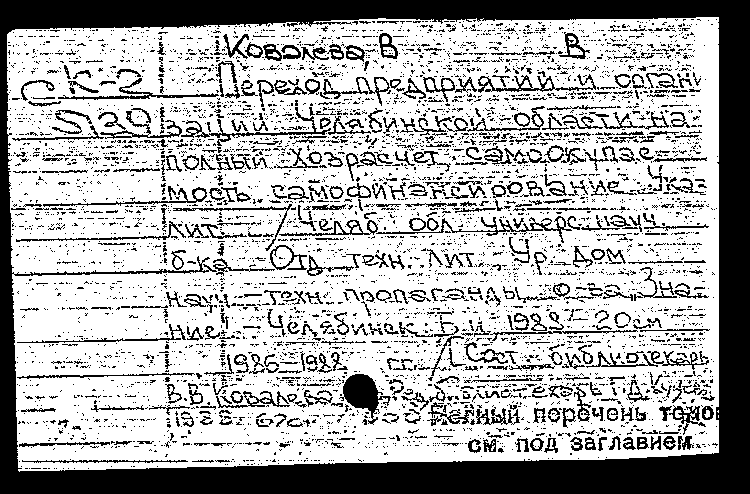 Ковалева, В В
С К-2 Переход предприятий и органи
5139 заций Челябинской области на
полный хозрасчет самоокупае-
мость самофинансирование Ука-
лит. / Челяб. обл. универс. науч.
б-ка Отд. техн. лит., Ур. Дом
науч. - техн. пропаганды о-ва "Зна-
ние". - Челябинск: Б.и. 1988 - 20см
1986-1988 гг. / Сост. библиотекарь
В.В. Ковалева, Ред. библиотекарь Г.Д.
1988. 67с.
Полный перечень томов
см. под заглавием